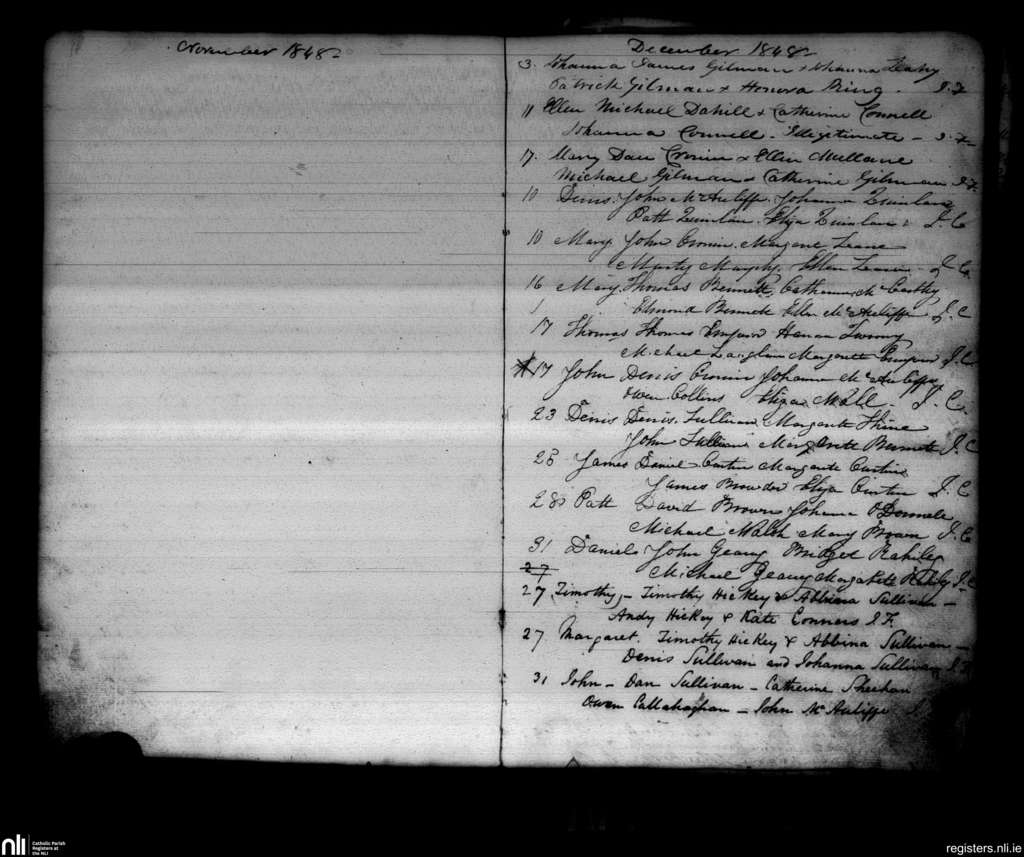 November 1848
December 1848
3. Johanna James Gilman & Johanna Leahy
Patrick Gilman & Honora Ring. J.F
11 Ellen Michael Dahill & Catherine Connell
Johanna Connell. Illegitimate - J.F
17. Mary Dan Cronin & Ellen Mullane
Michael Gilman & Catherine Gilman J.F.
10 Denis. John McAuliffe. Johanna Quinlan
Patt Quinlan. Eliza Quinlan. J. C
10 Mary. John Cronin. Margaret Leane
Murty Murphy. Ellen J C.
16 Mary Thomas Bennett, Catherine McCarthy
1 Edmond Bennett Ellen McAuliffe J. C
17 Thomas Thomas Twomy
Michael Margarett J. C
17 John Denis Cronin Johanna McAuliffe
Owen Collins Eliza J. C.
23 Denis Denis Sullivan Margarett Shine
John Sullivan Margarett Bennett J. C
26 James Daniel Curtin Margarett Curtin
James Eliza Curtin J. C
28 Patt David Brown Johanna O'Donnell
Michael Walsh Mary Brown J. C
31 Daniel John Geany Bridget Rahily
27 Michael Geany Margarett Rahily J. C
27 Timothy - Timothy Hickey & Abbina Sullivan -
Andy Hickey & Kate Connors J. F.
27 Margaret. Timothy Hickey & Abbina Sullivan -
Denis Sullivan and Johanna Sullivan J. F
31 John - Dan Sullivan - Catherine Sheehan
Owen Callahaghan - John McAuliffe J
nli
Catholic Parish
Registers at
the NLI
registers.nli.ie